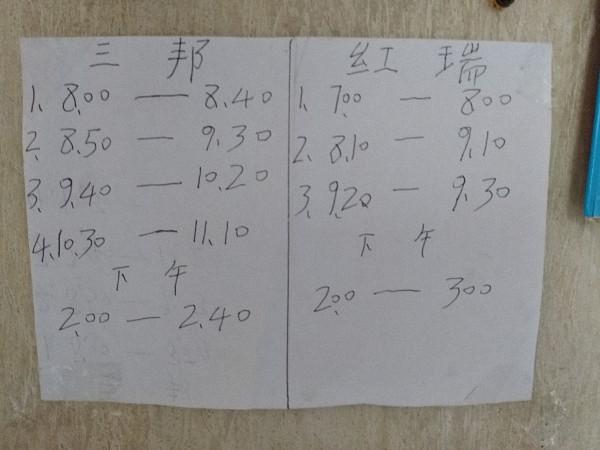 三 邦
1. 8.00 — 8.40
2. 8.50 — 9.30
3. 9.40 — 10.20
4. 10.30 — 11.10
下 午
2.00 — 2.40
红 瑞
1. 7.00 — 8.00
2. 8.10 — 9.10
3. 9.20 — 9.30
下 午
2.00 — 3.00